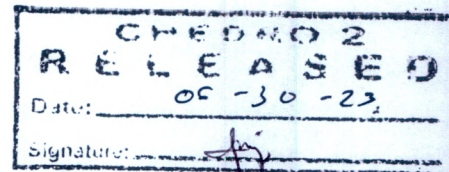 CHEDRO 2
RELEASED
Date: 06 -30 -23
Signature: